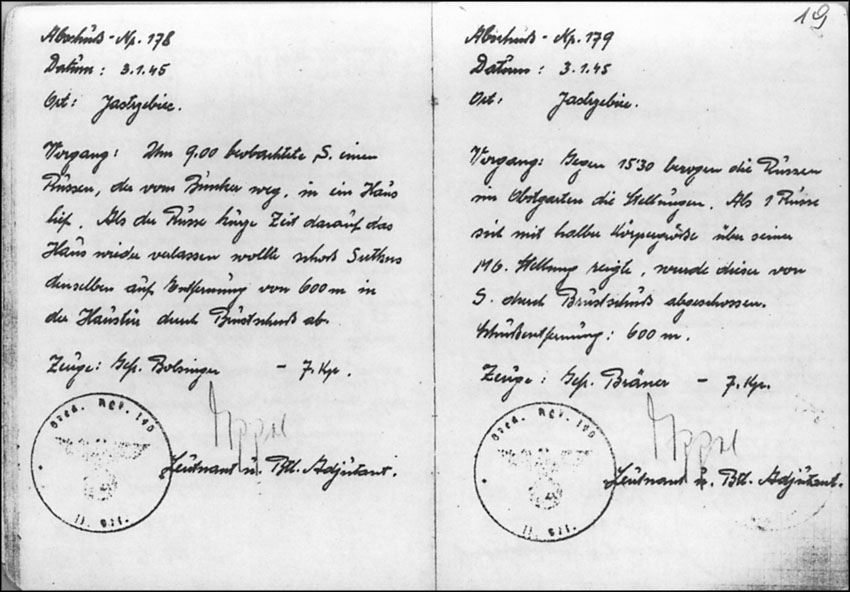 Abschuß - Np. 178
Datum : 3.1.45
Ort : Jastrzebiec.
Vorgang : Um 9.00 beobachtete S. einen
Russen, der vom Bunker weg, in ein Haus
lief. Als der Russe kurze Zeit darauf das
Haus wieder verlassen wollte schoß Sutkus
denselben auf Entfernung von 600 m in
der Haustür durch Brustschuß ab.
Zeuge : Gefr. Bolsinger - 7. Kp.
Gren. Rgt. 190
Leutnant u. Btl. Adjutant.
II. Btl.
19
Abschuß - Np. 179
Datum : 3.1.45
Ort : Jastrzebiec.
Vorgang : Gegen 15³⁰ bezogen die Russen
im Obstgarten die Stellungen. Als 1 Russe
sich mit halber Körpergröße über seiner
MG. Stellung zeigte, wurde dieser von
S. durch Brustschuß abgeschossen.
Schußentfernung : 600 m.
Zeuge : Gefr. Bräuer - 7. Kp.
Gren. Rgt. 190
Leutnant u. Btl. Adjutant.
II. Btl.